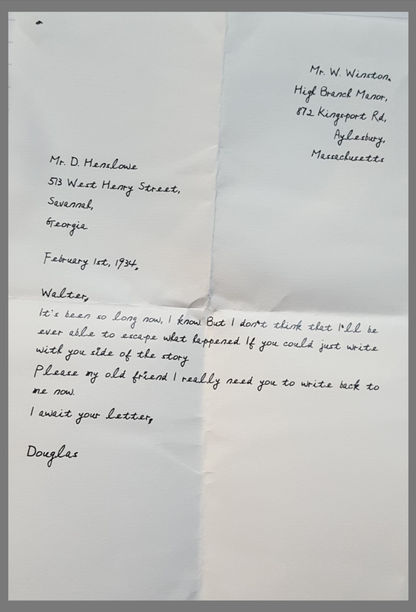 Mr. W. Winston,
High Branch Manor,
872 Kingsport Rd,
Aylesbury,
Massachusetts
Mr. D. Henslowe
513 West Henry Street,
Savannah,
Georgia
February 1st, 1934,
Walter,
It's been so long now, I know But I don't think that I'll be
ever able to escape what happened If you could just write
with you side of the story
Please my old friend I really need you to write back to
me now.
I await your letter,
Douglas